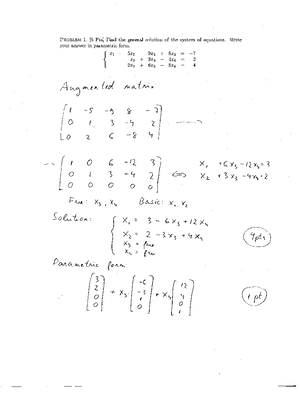 PROBLEM 1. [5 Pts] Find the general solution of the system of equations. Write
your answer in parametric form.
x₁ 5x₂ 9x₃ + 8x₄ = −7
x₂ + 3x₃ − 4x₄ = 2
2x₂ + 6x₃ − 8x₄ = 4
Augmented matrix
1 -5 -9 8 -7
0 1 3 -4 2
0 2 6 -8 4
1 0 6 -12 3
0 1 3 -4 2
0 0 0 0 0
⇔
x₁ + 6x₃ - 12x₄ = 3
x₂ + 3x₃ - 4x₄ = 2
Free: x₃, x₄ Basic: x₁, x₂
Solution:
x₁ = 3 - 6x₃ + 12x₄
x₂ = 2 - 3x₃ + 4x₄
x₃ = free
x₄ = free
4 pts
Parametric form
3
2
0
0
+ x₃
-6
-3
1
0
+ x₄
12
4
0
1
1 pt